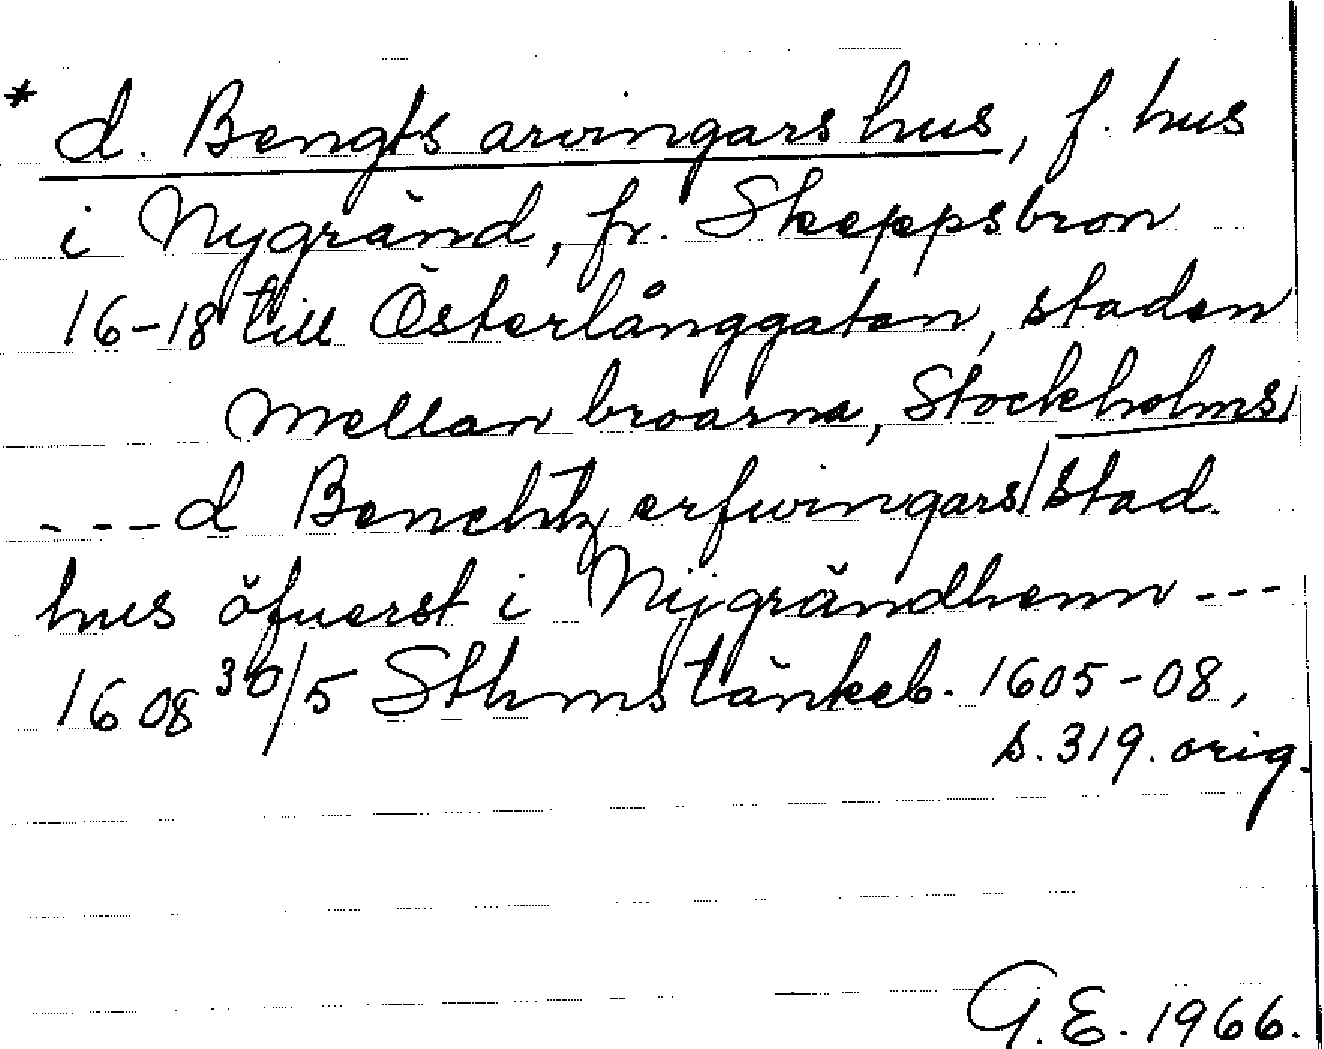 * d. Bengts arvingars hus, f. hus
i Nygränd, fr. Skeppsbron
16-18 till Österlånggatan, staden
mellan broarna, Stockholms
---d Benchtz erfwingars stad.
hus öfuerst i Nygrändhenn ---
1608 30/5 Sthmstänkeb. 1605-08,
s. 319. orig.
G.E. 1966.